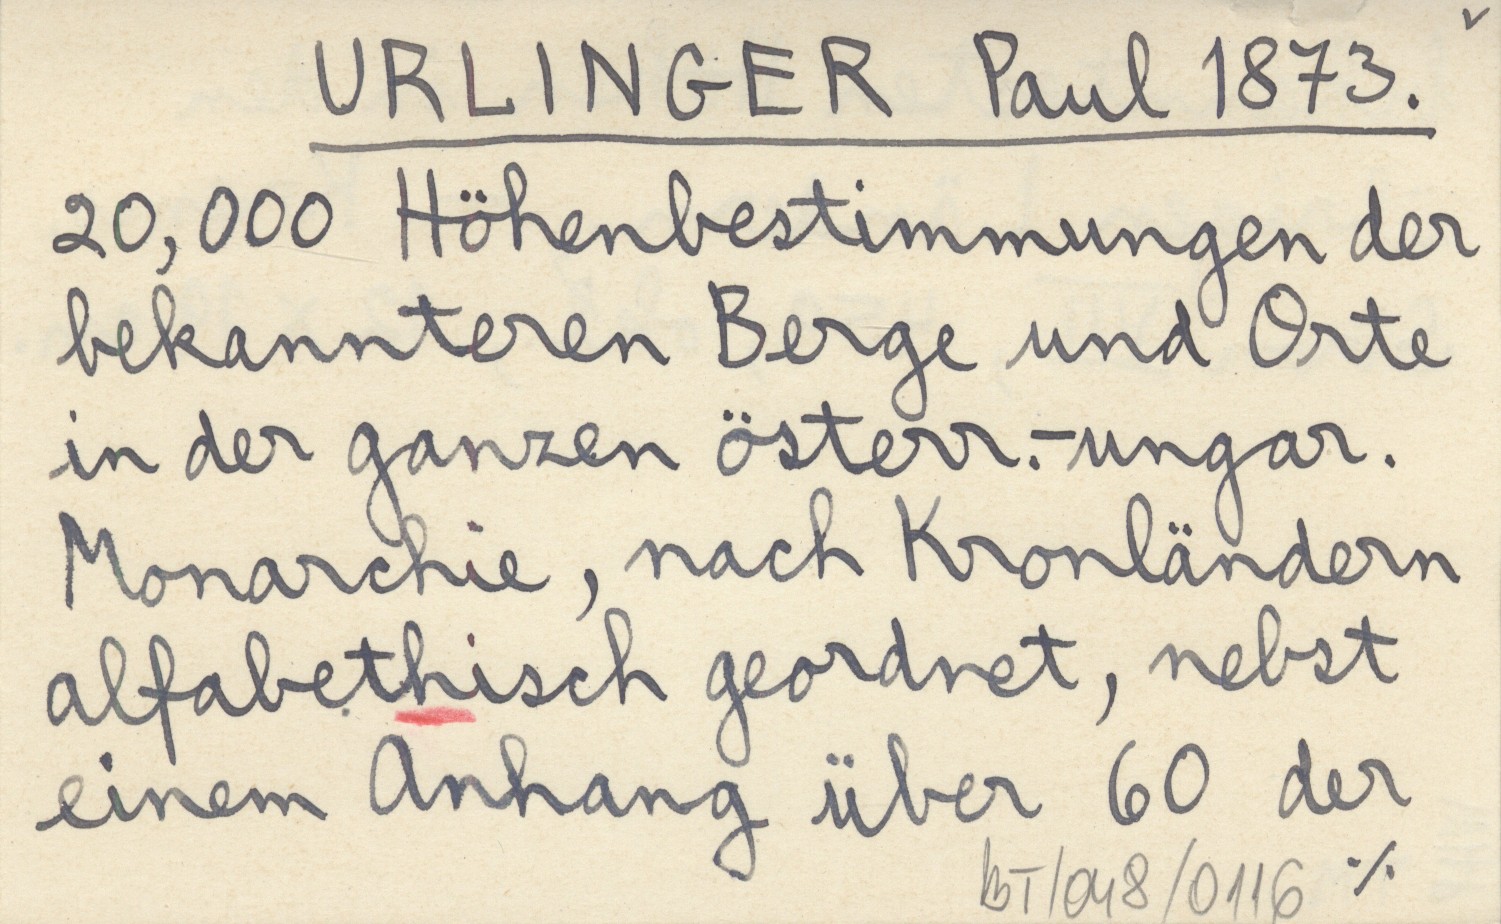 URLINGER Paul 1873.
20,000 Höhenbestimmungen der
bekannteren Berge und Orte
in der ganzen österr.-ungar.
Monarchie, nach Kronländern
alfabethisch geordnet, nebst
einem Anhang über 60 der
BT/048/0116 ./.